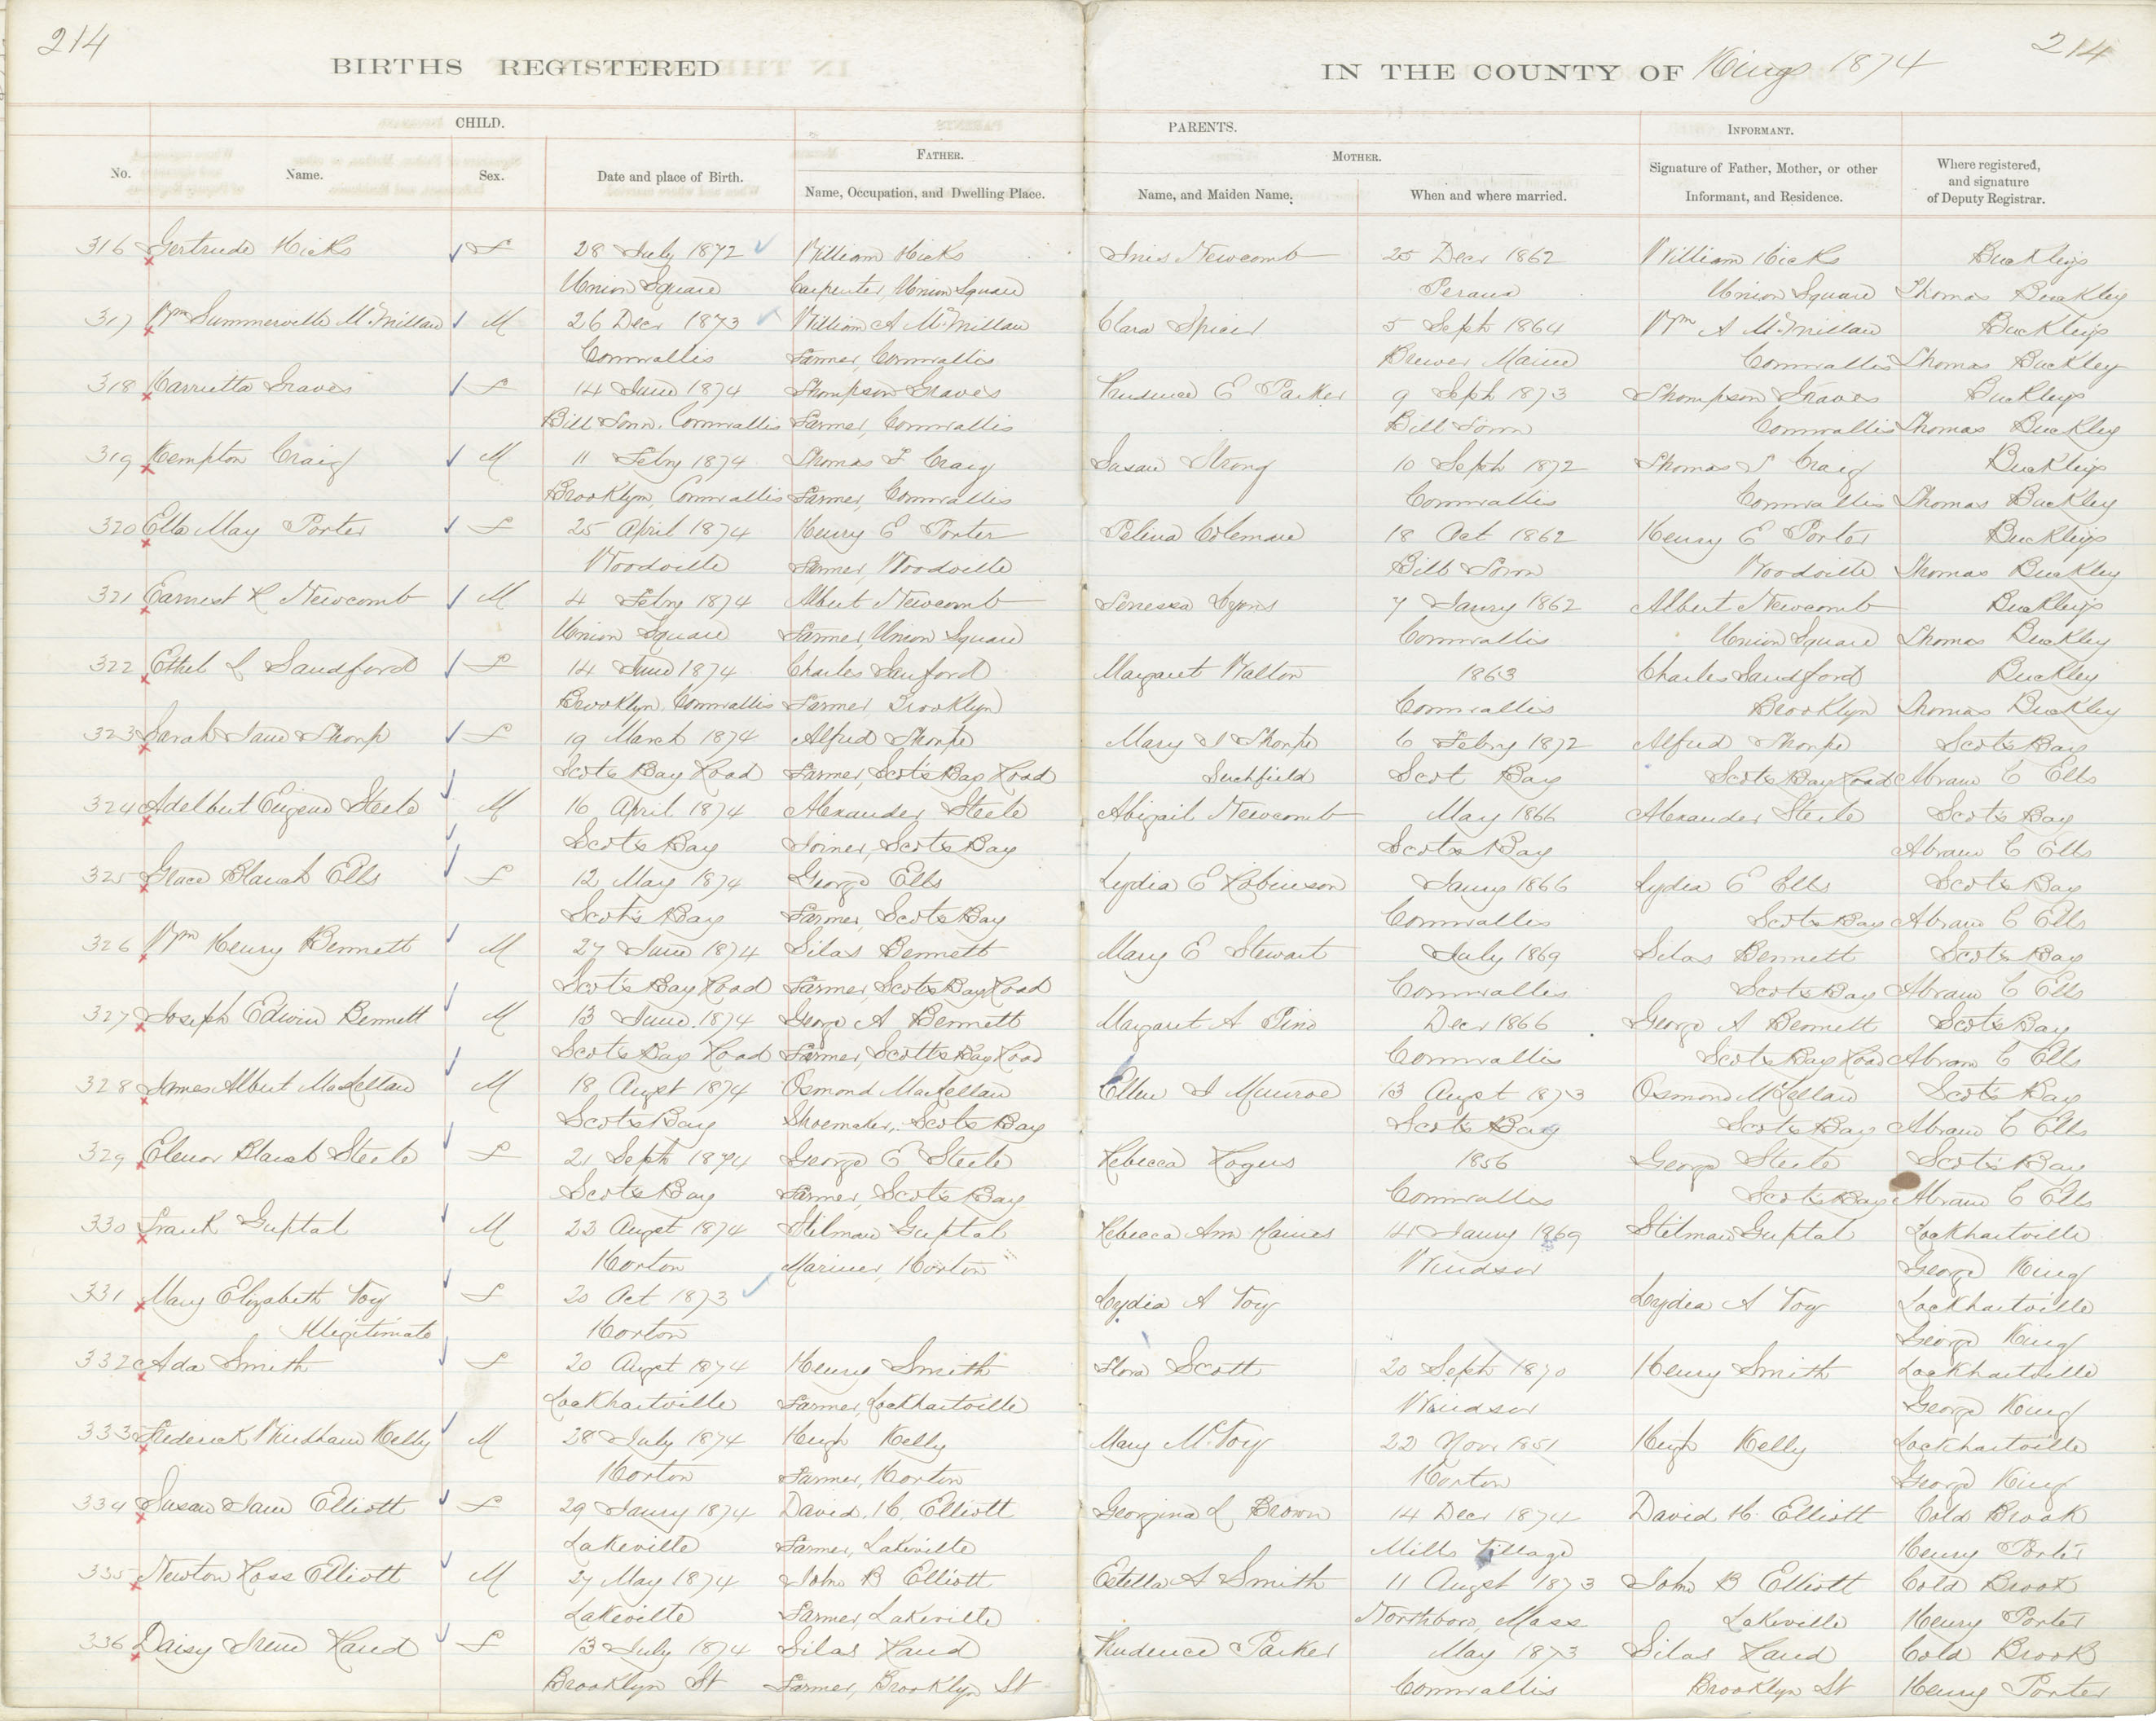 214
214
BIRTHS REGISTERED IN THE COUNTY OF Kings 1874
CHILD. PARENTS. INFORMANT.
FATHER. MOTHER.
No. Name. Sex. Date and place of Birth. Name, Occupation, and Dwelling Place. Name, and Maiden Name. When and where married. Signature of Father, Mother, or other Informant, and Residence. Where registered, and signature of Deputy Registrar.
316 Gertrude Hicks F 28 July 1872 William Hicks Inis Newcomb 25 Decr 1862 William Hicks Buckleys
Union Square Carpenter, Union Square Union Square Thomas Buckley
317 Wm Summerville McMillan M 26 Decr 1873 William A McMillan Clara Spicer 5 Sept 1864 Wm A McMillan Buckleys
Cornwallis Farmer, Cornwallis Brewer Maine Cornwallis Thomas Buckley
318 Harrietta Graves F 14 June 1874 Thompson Graves Prudence E Parker 9 Sept 1873 Thompson Graves Buckleys
Bill Town, Cornwallis Farmer, Cornwallis Bill Town Cornwallis Thomas Buckley
319 Kempton Craig M 11 Febry 1874 Thomas S Craig Susan Strong 10 Sept 1872 Thomas S Craig Buckleys
Brooklyn, Cornwallis Farmer, Cornwallis Cornwallis Cornwallis Thomas Buckley
320 Ella May Porter F 25 April 1874 Henry E Porter Pelina Coleman 18 Oct 1862 Henry E Porter Buckleys
Woodville Farmer, Woodville Bill Town Woodville Thomas Buckley
321 Earnest R Newcomb M 4 Febry 1874 Albert Newcomb Senessa Lyons 7 Janry 1862 Albert Newcomb Buckleys
Union Square Farmer, Union Square Cornwallis Union Square Thomas Buckley
322 Ethel L Sandford F 14 June 1874 Charles Sanford Margaret Walton 1863 Charles Sandford Buckley
Brooklyn, Cornwallis Farmer, Brooklyn Cornwallis Brooklyn Thomas Buckley
323 Sarah Jane Thorp F 19 March 1874 Alfred Thorpe Mary I Thorpe 6 Febry 1872 Alfred Thorpe Scots Bay
Scots Bay Road Farmer, Scots Bay Road Suchfield Scot Bay Scots Bay Road Abram C Ells
324 Adelbert Eugene Steele M 16 April 1874 Alexander Steele Abigail Newcomb May 1866 Alexander Steele Scots Bay
Scots Bay Joiner, Scots Bay Scots Bay Abram C Ells
325 Grace Blanch Ells F 12 May 1874 George Ells Lydia E Robinson Janry 1866 Lydia E Ells Scots Bay
Scots Bay Farmer, Scots Bay Cornwallis Scots Bay Abram C Ells
326 Wm Henry Bennett M 27 June 1874 Silas Bennett Mary E Stewart July 1869 Silas Bennett Scots Bay
Scots Bay Road Farmer, Scots Bay Road Cornwallis Scots Bay Abram C Ells
327 Joseph Edwin Bennett M 13 June 1874 George A Bennett Margaret A Pino Decr 1866 George A Bennett Scots Bay
Scots Bay Road Farmer, Scotts Bay Road Cornwallis Scots Bay Road Abram C Ells
328 James Albert MacKellan M 18 Augst 1874 Osmond MacKellan Ellen I Munroe 13 Augst 1873 Osmond McLellan Scots Bay
Scots Bay Shoemaker, Scots Bay Scots Bay Scots Bay Abram C Ells
329 Elenor Blanch Steele F 21 Sept 1874 George E Steele Rebecca Rogers 1856 George Steele Scots Bay
Scots Bay Farmer, Scots Bay Cornwallis Scots Bay Abram C Ells
330 Frank Guptal M 23 Augst 1874 Stilman Guptal Rebecca Ann Haines 14 Janry 1869 Stilman Guptal Lockhartville
Horton Mariner, Horton Windsor George King
331 Mary Elizabeth Toy F 20 Oct 1873 Lydia A Toy Lydia A Toy Lockhartville
Illegitimate Horton George King
332 Ada Smith F 20 Augst 1874 Henry Smith Flora Scott 20 Sept 1870 Henry Smith Lockhartville
Lockhartville Farmer, Lockhartville Windsor George King
333 Frederick Windham Kelly M 28 July 1874 Hugh Kelly Mary McToy 22 Novr 1851 Hugh Kelly Lockhartville
Horton Farmer, Horton Horton George King
334 Susan Jane Elliott F 29 Janry 1874 David H. Elliott Georgina L Brown 14 Decr 1874 David H. Elliott Cold Brook
Lakeville Farmer, Lakeville Mills Village Henry Porter
335 Newton Ross Elliott M 27 May 1874 John B Elliott Estella A Smith 11 Augst 1873 John B Elliott Cold Brook
Lakeville Farmer, Lakeville Northboro, Mass Lakeville Henry Porter
336 Daisy Irene Rand F 13 July 1874 Silas Rand Prudence Parker May 1873 Silas Rand Cold Brook
Brooklyn St Farmer, Brooklyn St Cornwallis Brooklyn St Henry Porter